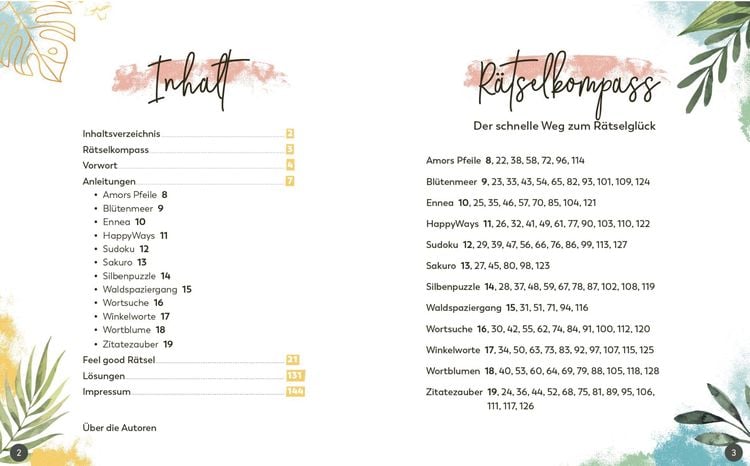 Inhalt
Inhaltsverzeichnis 2
Rätselkompass 3
Vorwort 4
Anleitungen 7
• Amors Pfeile 8
• Blütenmeer 9
• Ennea 10
• HappyWays 11
• Sudoku 12
• Sakuro 13
• Silbenpuzzle 14
• Waldspaziergang 15
• Wortsuche 16
• Winkelworte 17
• Wortblume 18
• Zitatezauber 19
Feel good Rätsel 21
Lösungen 131
Impressum 144
Über die Autoren
2
Rätselkompass
Der schnelle Weg zum Rätselglück
Amors Pfeile 8, 22, 38, 58, 72, 96, 114
Blütenmeer 9, 23, 33, 43, 54, 65, 82, 93, 101, 109, 124
Ennea 10, 25, 35, 46, 57, 70, 85, 104, 121
HappyWays 11, 26, 32, 41, 49, 61, 77, 90, 103, 110, 122
Sudoku 12, 29, 39, 47, 56, 66, 76, 86, 99, 113, 127
Sakuro 13, 27, 45, 80, 98, 123
Silbenpuzzle 14, 28, 37, 48, 59, 67, 78, 87, 102, 108, 119
Waldspaziergang 15, 31, 51, 71, 94, 116
Wortsuche 16, 30, 42, 55, 62, 74, 84, 91, 100, 112, 120
Winkelworte 17, 34, 50, 63, 73, 83, 92, 97, 107, 115, 125
Wortblumen 18, 40, 53, 60, 64, 69, 79, 88, 105, 118, 128
Zitatezauber 19, 24, 36, 44, 52, 68, 75, 81, 89, 95, 106,
111, 117, 126
3